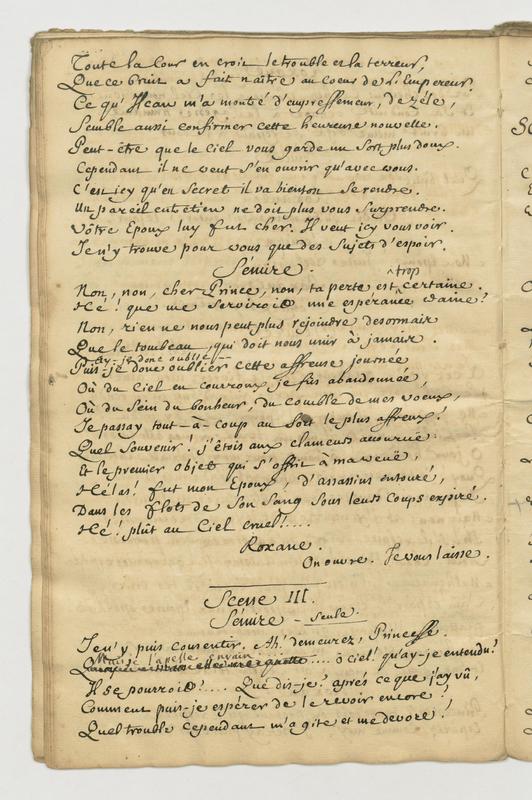 Toute la Cour en croit le trouble et la terreur,
Que ce bruit a fait naître au coeur de l'Empereur.
Ce qu'Hcau m'a montré d'empressement, de zéle,
Semble aussi confirmer cette heureuse nouvelle.
Peut-être que le Ciel vous garde un sort plus doux.
Cependant il ne veut s'en ouvrir qu'avec vous.
C'est icy qu'en secret il va bientôt se rendre.
Un pareil entretien ne doit plus vous surprendre.
Vôtre Epoux luy fut cher. Il veut icy vous voir.
Je n'y trouve pour vous que des sujets d'espoir.
Sémire.
trop
Non, non, cher Prince, non, ta perte est certaine.
Hé! que me serviroit une espérance vaine?
Non, rien ne nous peut plus rejoindre desormais
Que le tombeau, qui doit nous unir à jamais.
ay-je donc oublié
Puis-je donc oublier cette affreuse journée
Où du Ciel en courroux je fus abandonnée,
Où du sein du bonheur, du comble de mes voeux,
Je passay tout-à-coup au sort le plus affreux!
Quel souvenir! j'étois aux clameurs accourüe
Et le premier objet qui s'offrit à ma veuë,
Hélas! fut mon Epoux, d'assassins entouré,
Dans les flots de son sang sous leurs coups expiré.
Hé! plût au Ciel cruel!....
Roxane.
On ouvre. Je vous laisse.
Scene III.
Sémire - seule.
Je n'y puis consentir. Ah! demeurez, Princesse.
Mais je l'apelle envain
.... ô ciel! qu'ay-je entendu?
Il se pourroit!.... Que dis-je? aprés ce que j'ay vû,
Comment puis-je espérer de le revoir encore!
Quel trouble cependant m'agite et me devore!